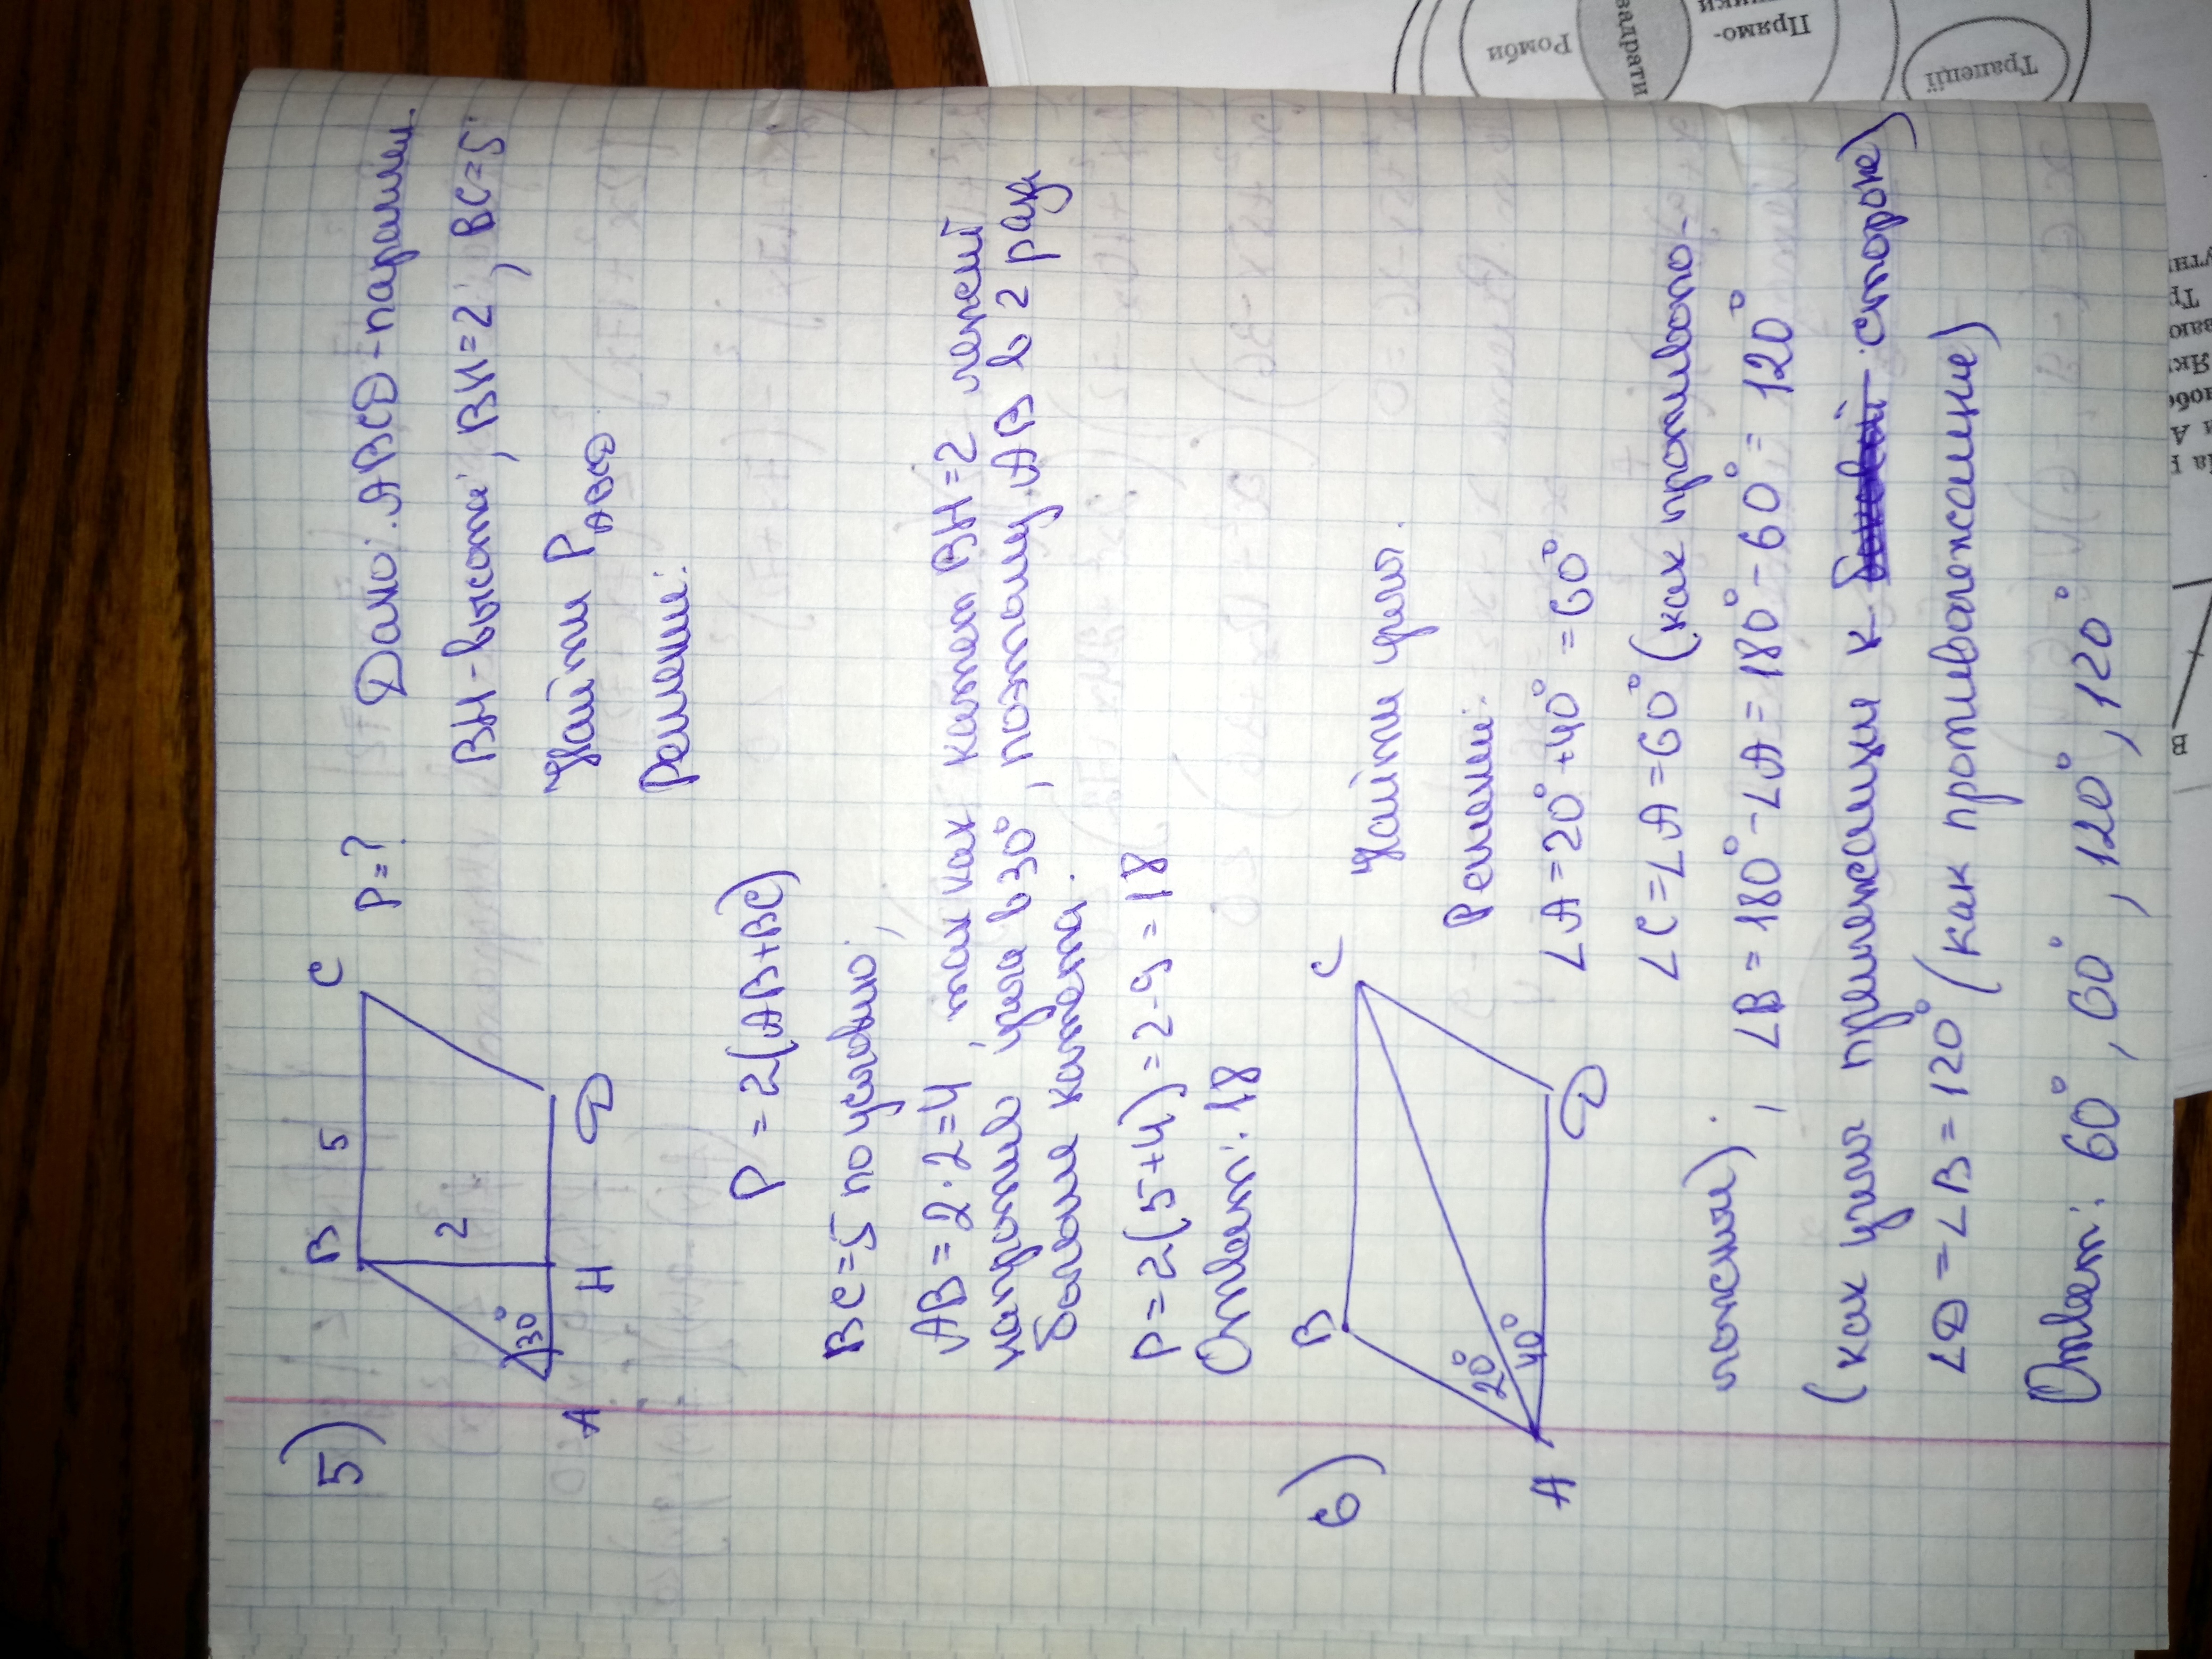 5)
B 5 C P=?
2
30°
A H D
Дано: ABCD - паралл.
BH - высота, BH=2, BC=5
Найти P ABCD
Решение:
P = 2(AB+BC)
BC=5 по условию,
AB=2·2=4, так как катет BH=2 лежит
напротив угла в 30°, поэтому AB в 2 раза
больше катета.
P=2(5+4)=2·9=18
Ответ: 18
6)
B C
20°
40°
A D
Найти углы.
Решение:
∠A=20°+40°=60°
∠C=∠A=60° (как противопо-
ложные), ∠B=180°-∠A=180°-60°=120°
(как углы прилежащие к стороне)
∠D=∠B=120° (как противолежащие)
Ответ: 60°, 60°, 120°, 120°
Ромби
Квадрати
Прямо-
Трапеції
B